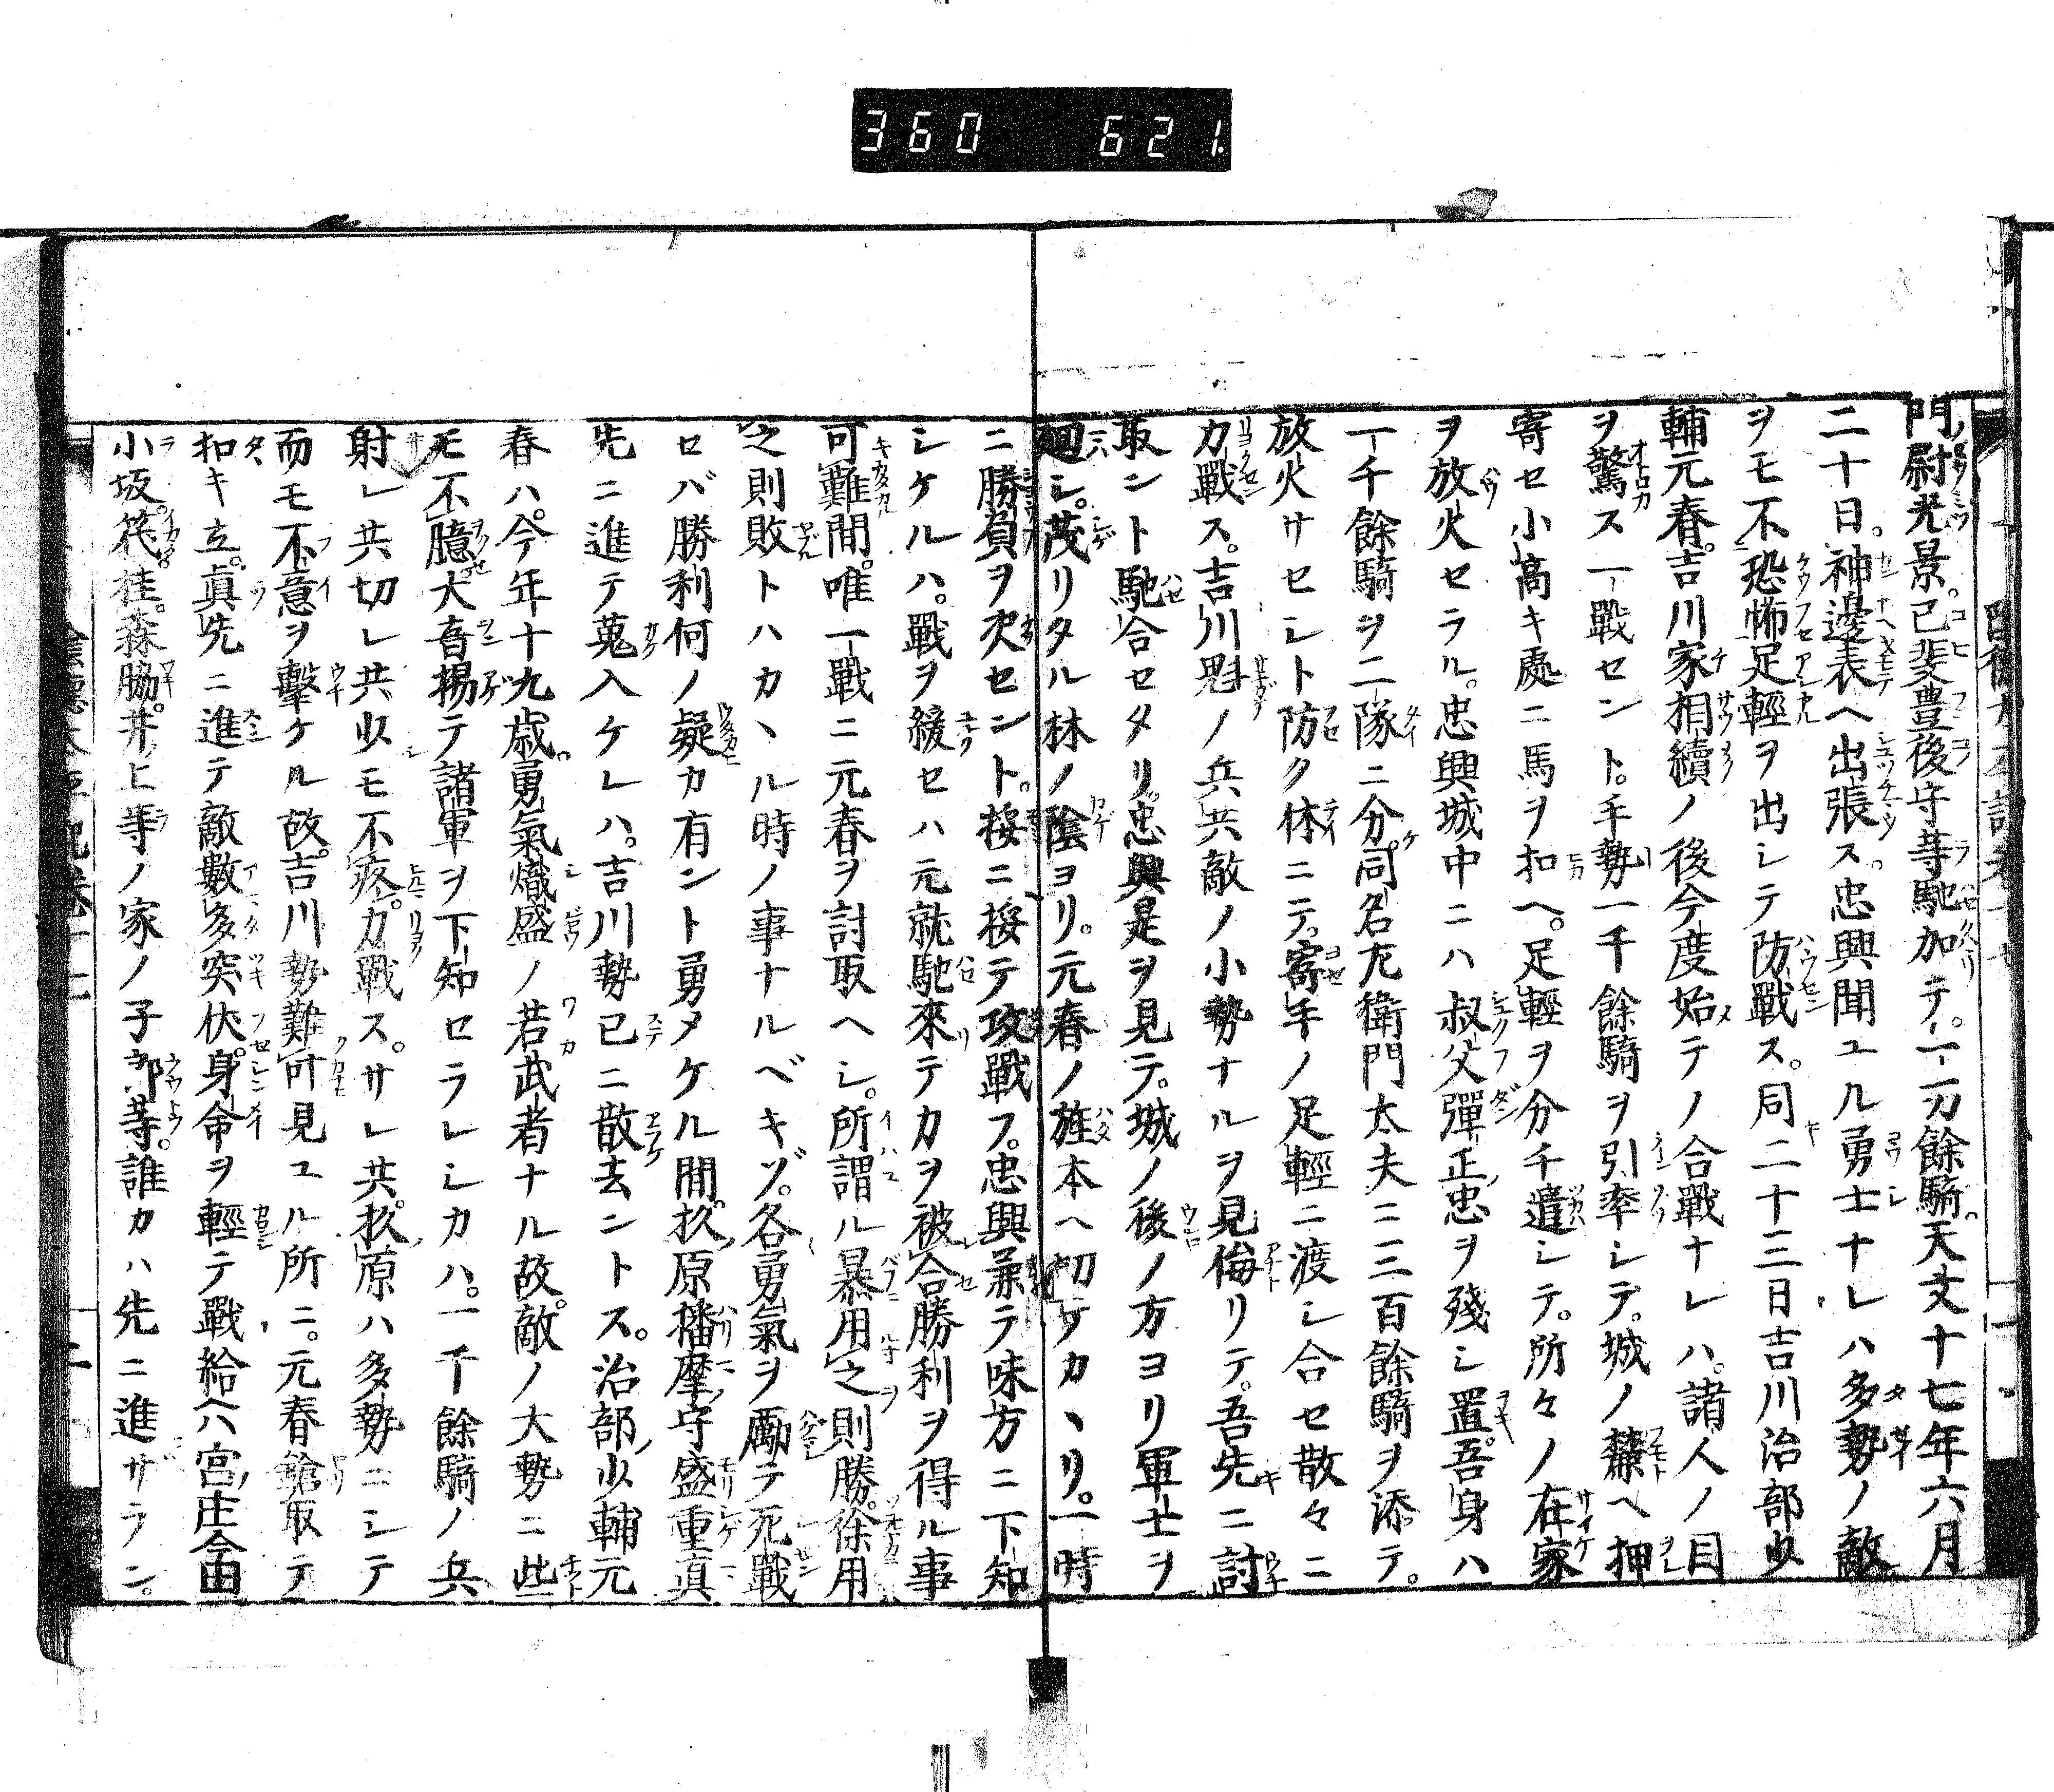 360 621
門ノ尉光景。己斐豊後守等馳加テ。一万餘騎。天文十七年六月
二十日。神邊表ヘ出張ス。忠興聞ユル勇士ナレハ多勢ノ敵
ヲモ不恐怖足輕ヲ出シテ防戰ス。同二十三日吉川治部少
輔元春。吉川家相續ノ後今度始テノ合戰ナレハ。諸人ノ目
ヲ驚ス一戰セント。手勢一千餘騎ヲ引率シテ。城ノ麓ヘ押
寄セ小高キ處ニ馬ヲ扣ヘ。足輕ヲ分チ遣シテ。所々ノ在家
ヲ放火セラル。忠興城中ニハ叔父彈正忠ヲ殘シ置。吾身ハ
一千餘騎ヲ二隊ニ分。同名左衛門太夫ニ三百餘騎ヲ添テ。
放火サセシト防ク体ニテ。寄手ノ足輕ニ渡シ合セ散々ニ
力戰ス。吉川勢ノ兵共敵ノ小勢ナルヲ見侮リテ。吾先ニ討
取ント馳合セタリ。忠興是ヲ見テ。城ノ後ノ方ヨリ軍士ヲ
廻シ。茂リタル林ノ陰ヨリ。元春ノ旌本ヘ切テカヽリ。一時
ニ勝負ヲ決セント。接ニ接テ攻戰フ。忠興兼テ味方ニ下知
シケルハ。戰ヲ緩セハ元就馳來テカヲ被合勝利ヲ得ル事
可難間。唯一戰ニ元春ヲ討取ヘシ。所謂ル暴用之則勝。徐用
之則敗トハカヽル時ノ事ナルベキゾ。各勇氣ヲ勵テ死戰
セバ勝利何ノ疑カ有ント勇メケル間。杉原播摩守盛重真
先ニ進テ蒐入ケレハ。吉川勢已ニ散去ントス。治部少輔元
春ハ。今年十九歳。勇氣熾盛ノ若武者ナル故。敵ノ大勢ニ些
モ不臆大音揚テ諸軍ヲ下知セラレシカハ。一千餘騎ノ兵
射レ共切レ共少モ不疼。力戰ス。サレ共。杉原ハ多勢ニシテ
而モ不意ヲ擊ケル故。吉川勢難可見ユル所ニ。元春鎗取テ
扣キ立。眞先ニ進テ敵數多突伏。身命ヲ輕テ戰給ヘハ宮庄今田
小坂。筏。桂。森脇。井ノ上等ノ家ノ子郎等。誰カハ先ニ進ザラン。